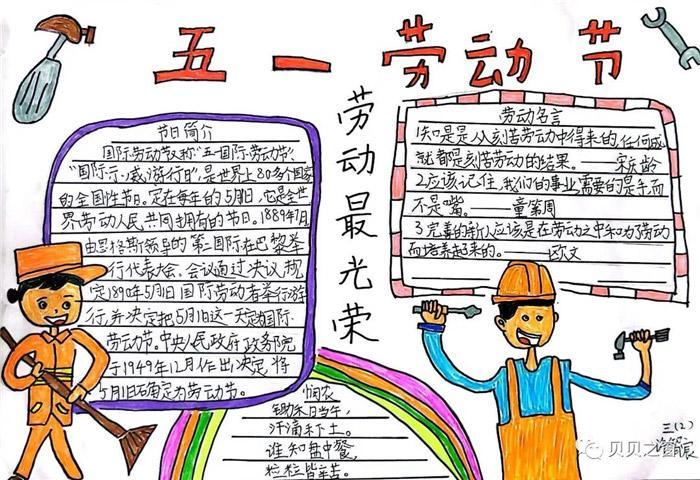 五一劳动节
节日简介
国际劳动节又称"五一国际劳动节"、
"国际示威游行日",是世界上80多个国家
的全国性节日。定在每年的5月1日,它是全世
界劳动人民共同拥有的节日。1889年7月
由恩格斯领导的第二国际在巴黎举
行代表大会,会议通过决议,规
定1890年5月1日国际劳动者举行游
行,并决定把5月1日这一天定为国际
劳动节。中央人民政府政务院
于1949年12月作出决定,将
5月1日确定为劳动节。
劳动最光荣
劳动名言
1知识是从刻苦劳动中得来的,任何成
就都是刻苦劳动的结果。——宋庆龄
2.应该记住,我们的事业,需要的是手而
不是嘴。——童第周
3完善的新人应该是在劳动之中和为了劳动
而培养起来的。——欧文
悯农
锄禾日当午,
汗滴禾下土。
谁知盘中餐,
粒粒皆辛苦。
三(2)
贝贝之窗